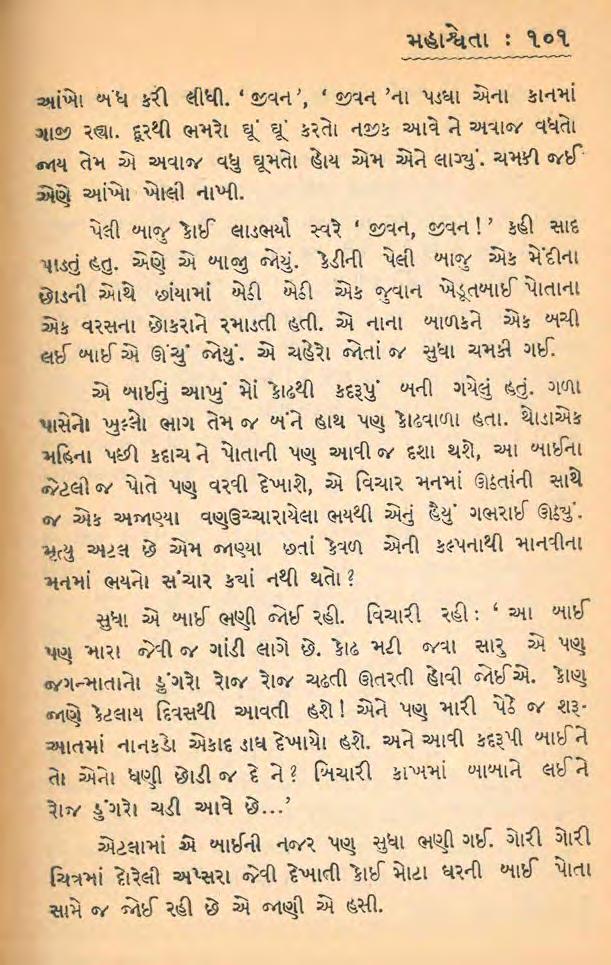 મહાશ્વેતા : ૧૦૧
આંખો બંધ કરી લીધી. ‘ જીવન’, ‘ જીવન ’ના પડઘા એના કાનમાં
ગાજી રહ્યા. દૂરથી ભમરો ઘૂં ઘૂં કરતો નજીક આવે ને અવાજ વધતો
જાય તેમ એ અવાજ વધુ ઘૂમતો હોય એમ એને લાગ્યું. ચમકી જઈ
એણે આંખો ખોલી નાખી.
પેલી બાજુ કોઈ લાડભર્યા સ્વરે ‘ જીવન, જીવન !’ કહી સાદ
પાડતું હતું. એણે એ બાજુ જોયું. કેડીની પેલી બાજુ એક મેંદીના
છોડની ઓથે છાંયામાં બેઠી બેઠી એક જુવાન ખેડૂતબાઈ પોતાના
એક વરસના છોકરાને રમાડતી હતી. એ નાના બાળકને એક બચી
લઈ બાઈએ ઊંચું જોયું. એ ચહેરો જોતાં જ સુધા ચમકી ગઈ.
એ બાઈનું આખું મોં કોઢથી કદરૂપું બની ગયેલું હતું. ગળા
પાસેનો ખુલ્લો ભાગ તેમ જ બંને હાથ પણ કોઢવાળા હતા. થોડાએક
મહિના પછી કદાચ ને પોતાની પણ આવી જ દશા થશે, આ બાઈના
જેટલી જ પોતે પણ વરવી દેખાશે, એ વિચાર મનમાં ઊઠતાંની સાથે
જ એક અજાણ્યા વણઉચ્ચારાયેલા ભયથી એનું હૈયું ગભરાઈ ઊઠ્યું.
મૃત્યુ અટલ છે એમ જાણ્યા છતાં કેવળ એની કલ્પનાથી માનવીના
મનમાં ભયનો સંચાર ક્યાં નથી થતો ?
સુધા એ બાઈ ભણી જોઈ રહી. વિચારી રહી : ‘ આ બાઈ
પણ મારા જેવી જ ગાંડી લાગે છે. કોઢ મટી જવા સારુ એ પણ
જગન્માતાનો ડુંગરો રોજ રોજ ચઢતી ઊતરતી હોવી જોઈએ. કોણ
જાણે કેટલાય દિવસથી આવતી હશે ! એને પણ મારી પેઠે જ શરૂ-
આતમાં નાનકડો એકાદ ડાઘ દેખાયો હશે. અને આવી કદરૂપી બાઈને
તો એનો ધણી છોડી જ દે ને ? બિચારી કાખમાં બાબાને લઈને
રોજ ડુંગરો ચડી આવે છે...’
એટલામાં એ બાઈની નજર પણ સુધા ભણી ગઈ. ગોરી ગોરી
ચિત્રમાં દોરેલી અપ્સરા જેવી દેખાતી કોઈ મોટા ઘરની બાઈ પોતા
સામે જ જોઈ રહી છે એ જાણી એ હસી.